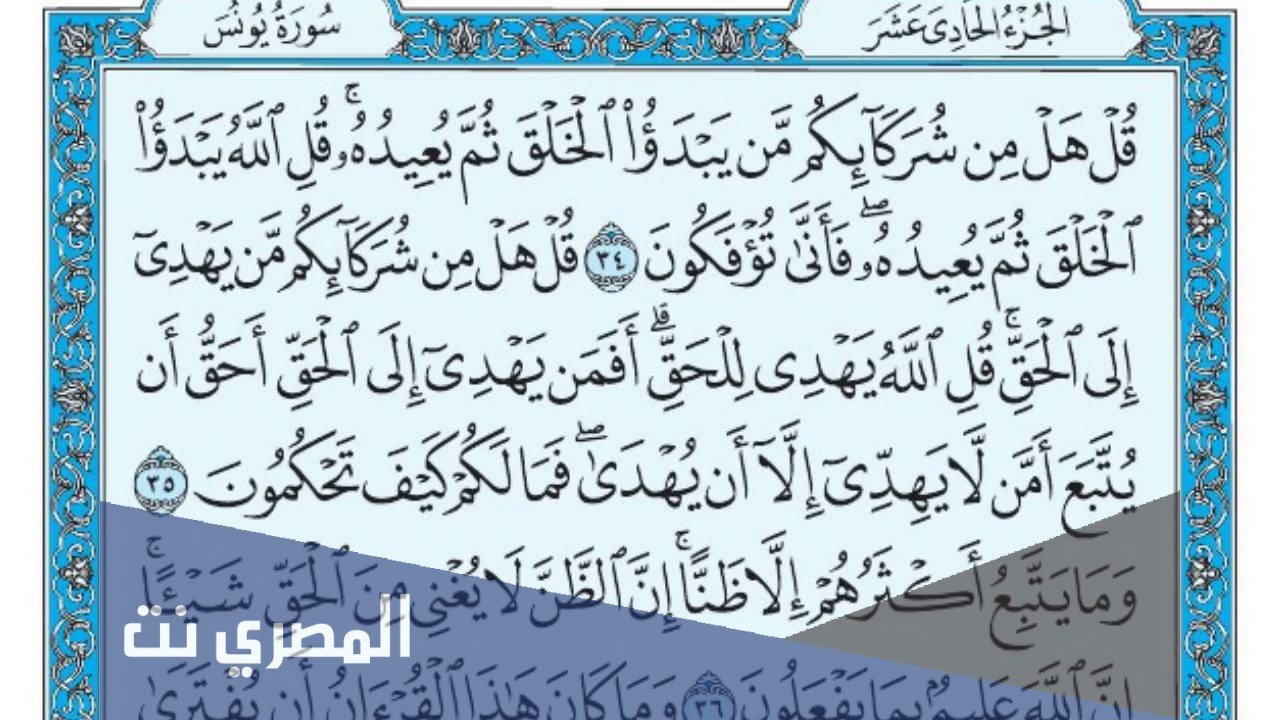 الجُزْءُ الحَادِىَ عَشَرَ
سُورَةُ يُونُسَ
قُلْ هَلْ مِن شُرَكَآئِكُم مَّن يَبْدَؤُاْ ٱلْخَلْقَ ثُمَّ يُعِيدُهُۥۚ قُلِ ٱللَّهُ يَبْدَؤُاْ
ٱلْخَلْقَ ثُمَّ يُعِيدُهُۥۖ فَأَنَّىٰ تُؤْفَكُونَ ٣٤ قُلْ هَلْ مِن شُرَكَآئِكُم مَّن يَهْدِىٓ
إِلَى ٱلْحَقِّۚ قُلِ ٱللَّهُ يَهْدِى لِلْحَقِّۗ أَفَمَن يَهْدِىٓ إِلَى ٱلْحَقِّ أَحَقُّ أَن
يُتَّبَعَ أَمَّن لَّا يَهِدِّىٓ إِلَّآ أَن يُهْدَىٰۖ فَمَا لَكُمْ كَيْفَ تَحْكُمُونَ ٣٥
وَمَا يَتَّبِعُ أَكْثَرُهُمْ إِلَّا ظَنًّاۚ إِنَّ ٱلظَّنَّ لَا يُغْنِى مِنَ ٱلْحَقِّ شَيْـًٔاۚ
إِنَّ ٱللَّهَ عَلِيمٌۢ بِمَا يَفْعَلُونَ ٣٦ وَمَا كَانَ هَٰذَا ٱلْقُرْءَانُ أَن يُفْتَرَىٰ
المصري نت